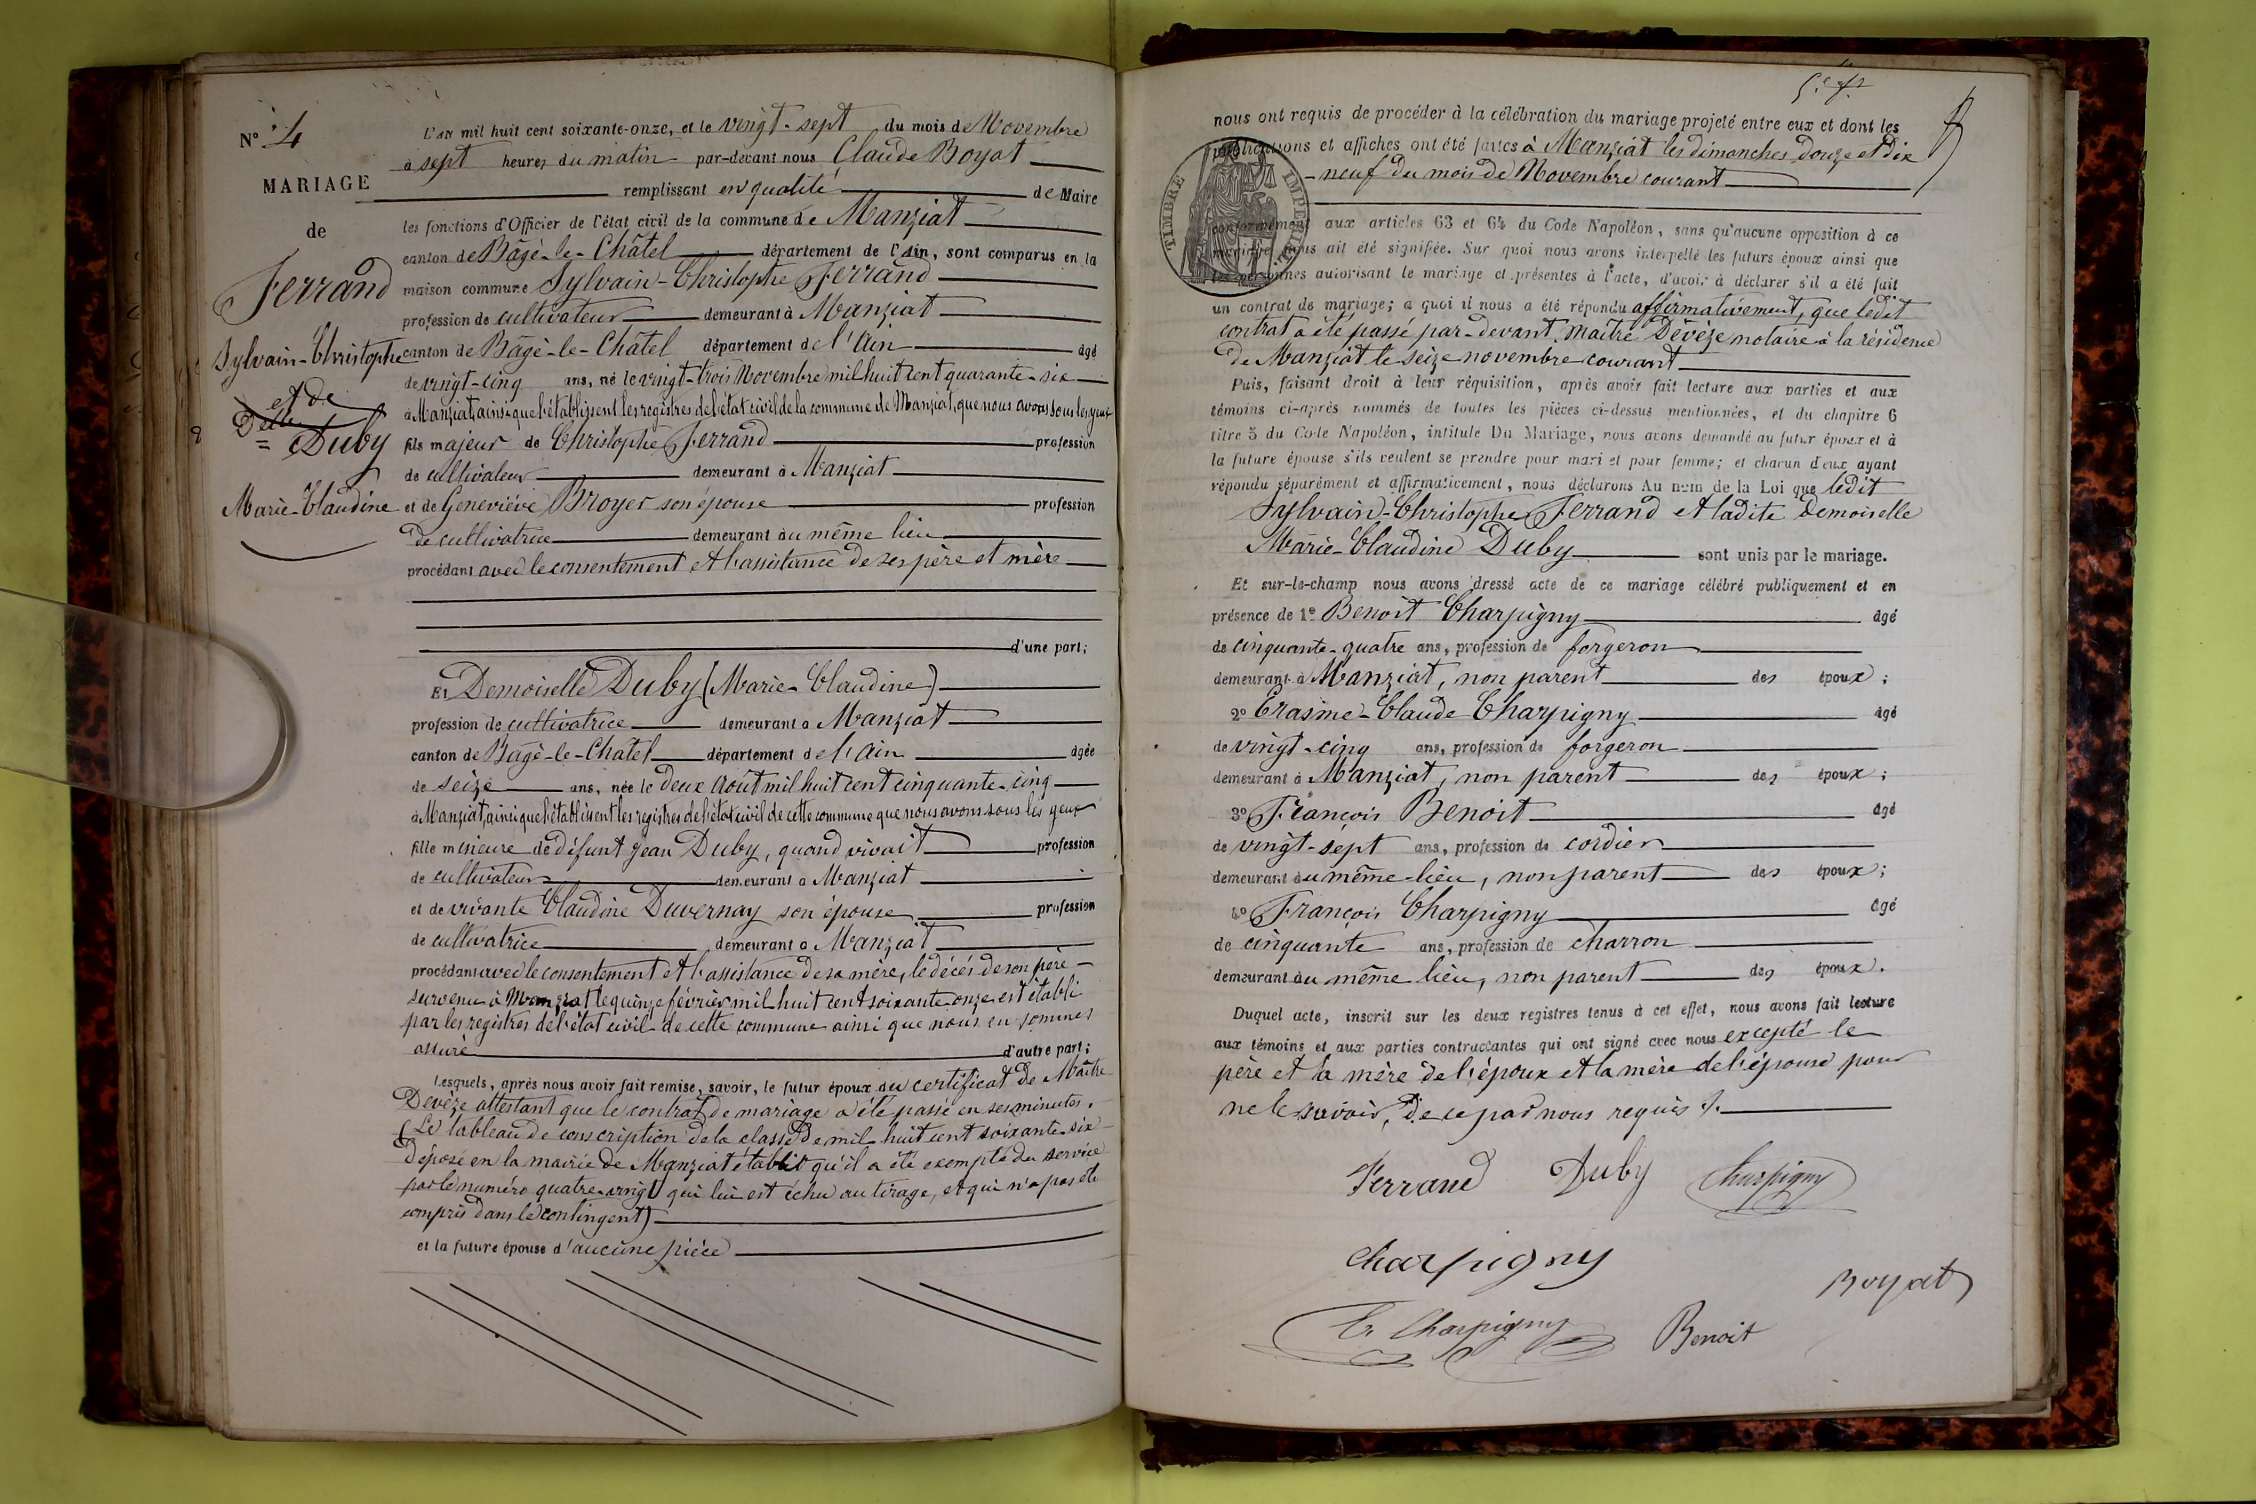 N° 4
MARIAGE
de
Ferrand
Sylvain-Christophe
et de
Delle
Duby
Marie-Claudine
L'an mil huit cent soixante-onze, et le vingt-sept du mois de Novembre
à sept heures du matin par-devant nous Claude Boyat
remplissant en qualité de Maire
les fonctions d'Officier de l'état civil de la commune de Manziat
canton de Bâgé-le-Châtel département de l'Ain, sont comparus en la
maison commune Sylvain-Christophe Ferrand
profession de cultivateur demeurant à Manziat
canton de Bâgé-le-Châtel département de l'Ain âgé
de vingt-cinq ans, né le vingt-trois Novembre mil huit cent quarante-six
à Manziat, ainsi que l'établissent les registres de l'état civil de la commune de Manziat, que nous avons sous les yeux
fils majeur de Christophe Ferrand profession
de cultivateur demeurant à Manziat
et de Geneviève Broyer son épouse profession
de cultivatrice demeurant au même lieu
procédant avec le consentement et l'assistance de ses père et mère
d'une part;
Et Demoiselle Duby (Marie-Claudine)
profession de cultivatrice demeurant à Manziat
canton de Bâgé-le-Châtel département de l'Ain âgée
de seize ans, née le deux Août mil huit cent cinquante-cinq
à Manziat, ainsi que l'établissent les registres de l'état civil de cette commune que nous avons sous les yeux
fille mineure de défunt Jean Duby, quand vivait profession
de cultivateur demeurant à Manziat
et de vivante Claudine Duvernay son épouse profession
de cultivatrice demeurant à Manziat
procédant avec le consentement et l'assistance de sa mère, le décès de son père
survenu à Manziat le quinze février mil huit cent soixante-onze est établi
par les registres de l'état civil de cette commune ainsi que nous en sommes
assuré d'autre part;
Lesquels, après nous avoir fait remise, savoir, le futur époux du certificat de Maître
Devèze attestant que le contrat de mariage a été passé en ses minutes.
(Le tableau de conscription de la classe de mil huit cent soixante-six
déposé en la mairie de Manziat établit qu'il a été exempté du service
par le numéro quatre-vingt qui lui est échu au tirage, et qui n'a pas été
compris dans le contingent)
et la future épouse d'aucune pièce
nous ont requis de procéder à la célébration du mariage projeté entre eux et dont les
publications et affiches ont été faites à Manziat les dimanches douze et dix
-neuf du mois de Novembre courant
TIMBRE IMPERIAL
conformément aux articles 63 et 64 du Code Napoléon, sans qu'aucune opposition à ce
mariage nous ait été signifiée. Sur quoi nous avons interpellé les futurs époux ainsi que
les personnes autorisant le mariage et présentes à l'acte, d'avoir à déclarer s'il a été fait
un contrat de mariage; à quoi il nous a été répondu affirmativement, que ledit
contrat a été passé par-devant Maître Devèze notaire à la résidence
de Manziat le seize novembre courant
Puis, faisant droit à leur réquisition, après avoir fait lecture aux parties et aux
témoins ci-après nommés de toutes les pièces ci-dessus mentionnées, et du chapitre 6
titre 5 du Code Napoléon, intitulé Du Mariage, nous avons demandé au futur époux et à
la future épouse s'ils veulent se prendre pour mari et pour femme; et chacun d'eux ayant
répondu séparément et affirmativement, nous déclarons Au nom de la Loi que ledit
Sylvain-Christophe Ferrand et ladite Demoiselle
Marie-Claudine Duby sont unis par le mariage.
Et sur-le-champ nous avons dressé acte de ce mariage célébré publiquement et en
présence de 1° Benoit Charpigny âgé
de cinquante-quatre ans, profession de forgeron
demeurant à Manziat, non parent des époux;
2° Erasme-Claude Charpigny âgé
de vingt-cinq ans, profession de forgeron
demeurant à Manziat, non parent des époux;
3° François Benoit âgé
de vingt-sept ans, profession de cordier
demeurant au même lieu, non parent des époux;
4° François Charpigny âgé
de cinquante ans, profession de charron
demeurant au même lieu, non parent des époux.
Duquel acte, inscrit sur les deux registres tenus à cet effet, nous avons fait lecture
aux témoins et aux parties contractantes qui ont signé avec nous excepté le
père et la mère de l'époux et la mère de l'épouse pour
ne le savoir, de ce par nous requis ./.
Ferrand Duby Charpigny
Charpigny
Boyat
Er Charpigny Benoit